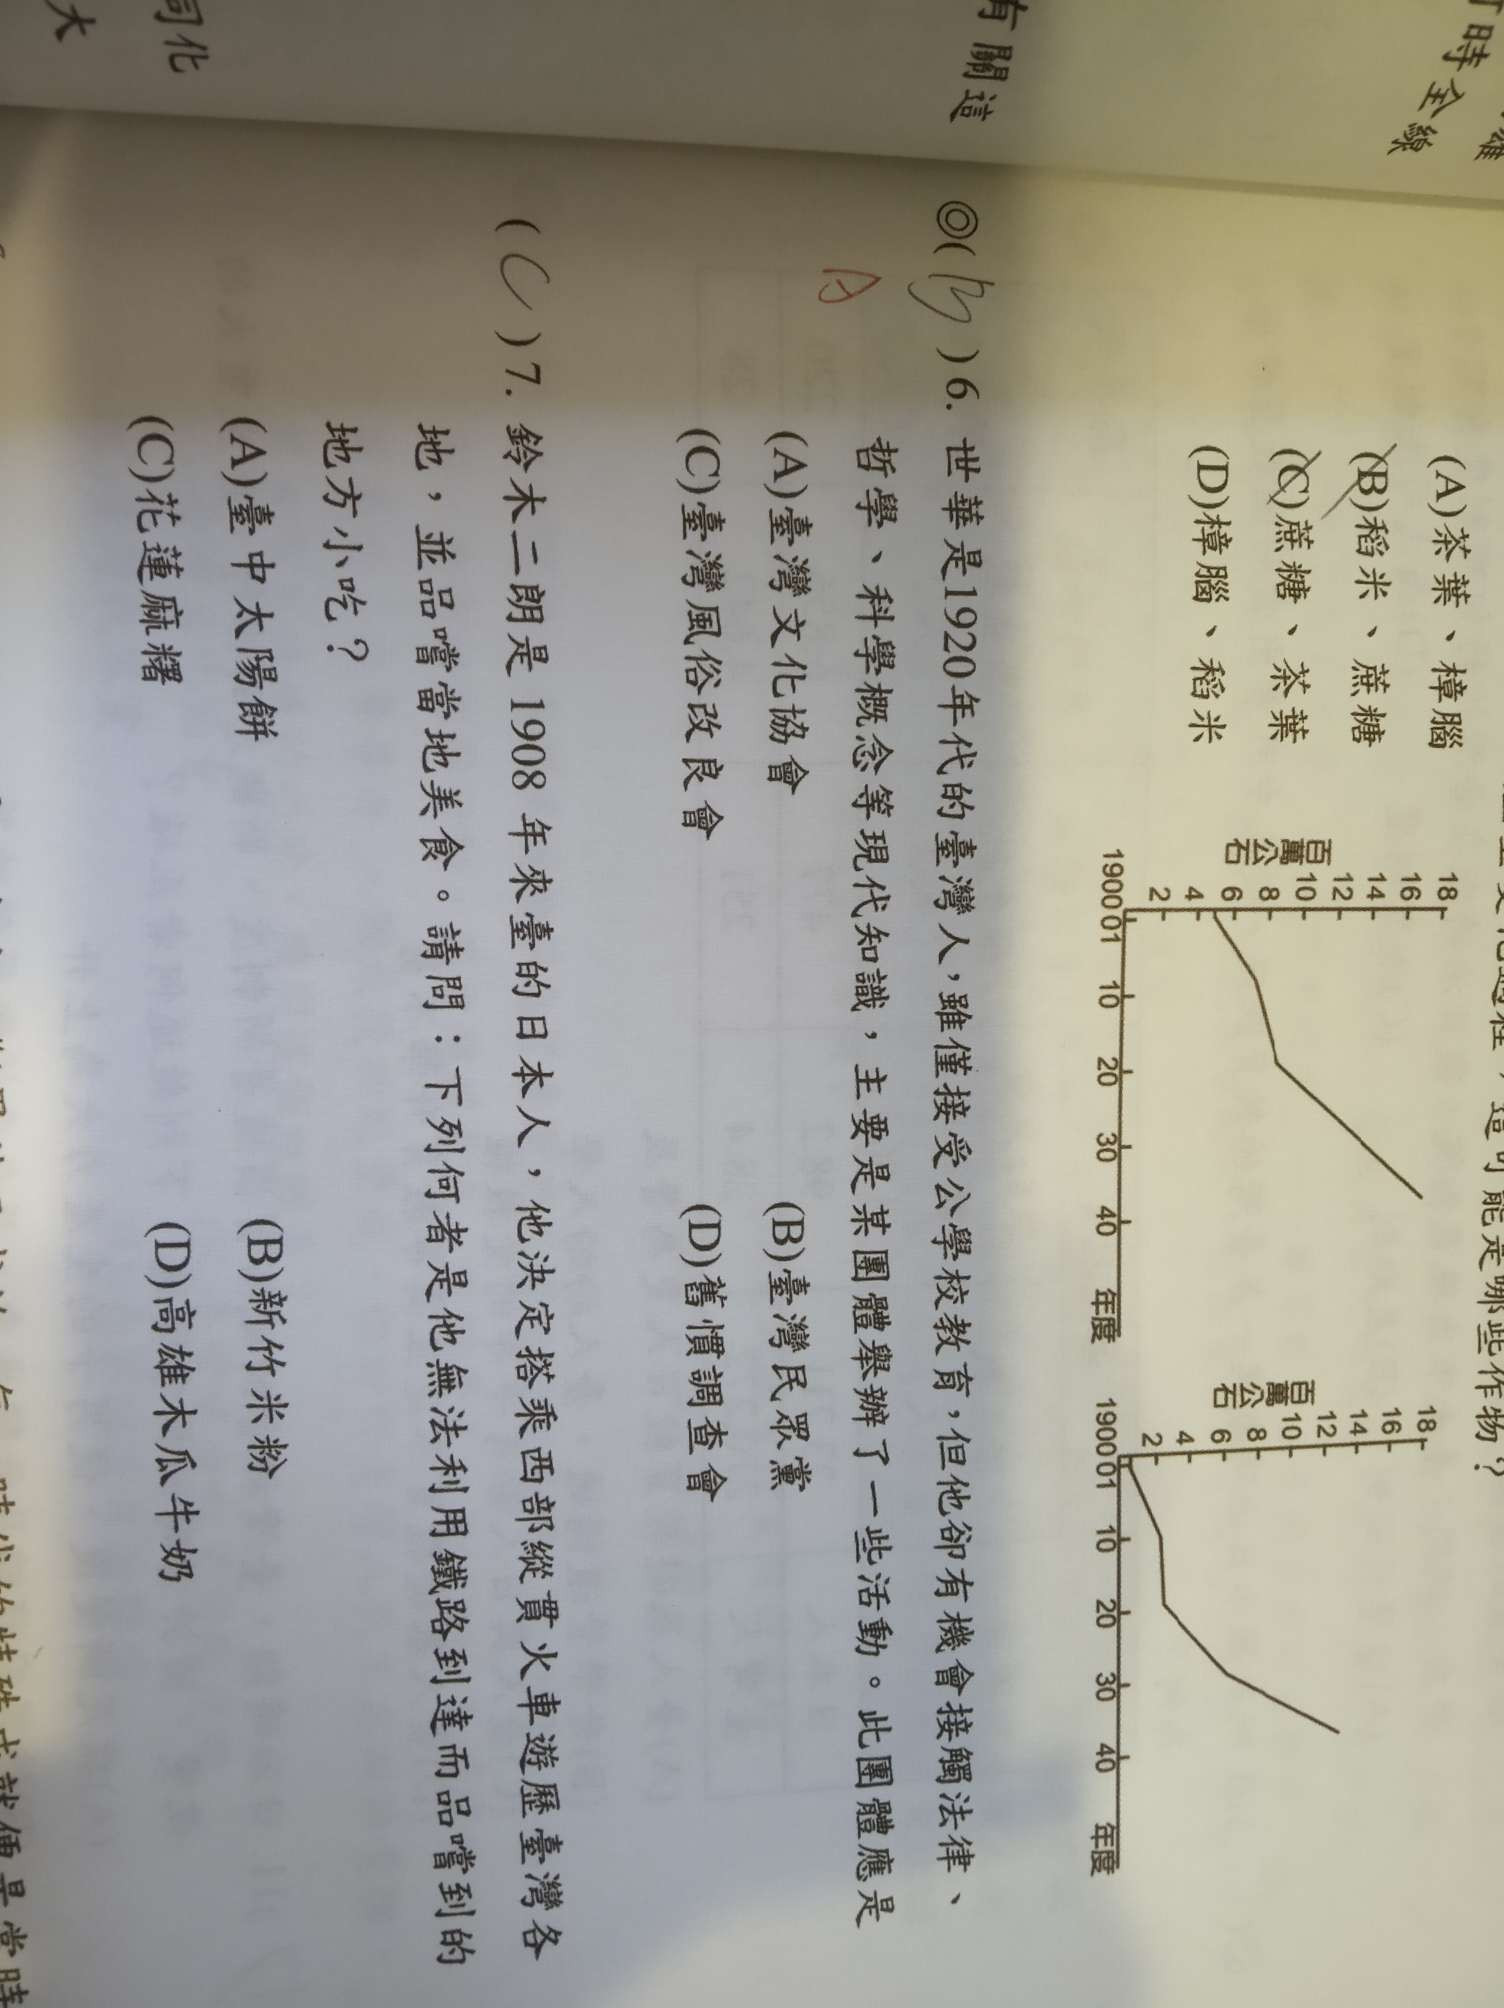 時全線
有關這
同化
大
變化過程，這可能是哪些作物？
(A)茶葉、樟腦
(B)稻米、蔗糖
(C)蔗糖、茶葉
(D)樟腦、稻米
百萬公石
18
16
14
12
10
8
6
4
2
1900 01 10 20 30 40 年度
百萬公石
18
16
14
12
10
8
6
4
2
1900 01 10 20 30 40 年度
◎(B)6. 世華是1920年代的臺灣人，雖僅接受公學校教育，但他卻有機會接觸法律、
A
哲學、科學概念等現代知識，主要是某團體舉辦了一些活動。此團體應是
(A)臺灣文化協會 (B)臺灣民眾黨
(C)臺灣風俗改良會 (D)舊慣調查會
(C)7. 鈴木二朗是 1908 年來臺的日本人，他決定搭乘西部縱貫火車遊歷臺灣各
地，並品嚐當地美食。請問：下列何者是他無法利用鐵路到達而品嚐到的
地方小吃？
(A)臺中太陽餅 (B)新竹米粉
(C)花蓮麻糬 (D)高雄木瓜牛奶